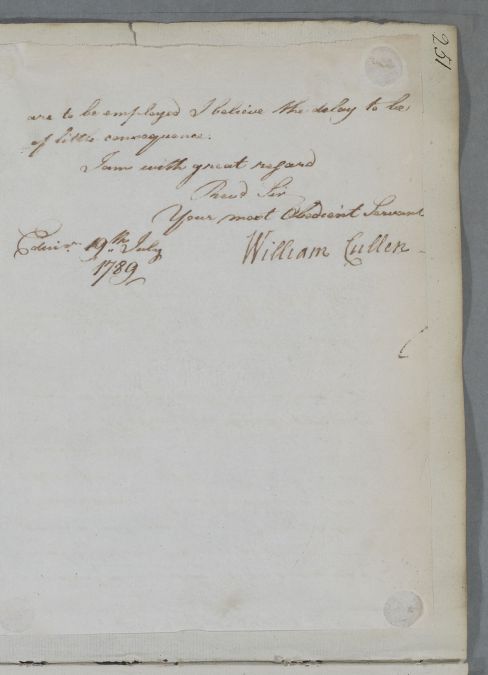 251
are to be employed I believe the delay to be
of little consequence.
I am with great regard
Revd Sir
Your most Obedient Servant
Edinr. 19th. July
1789
William Cullen